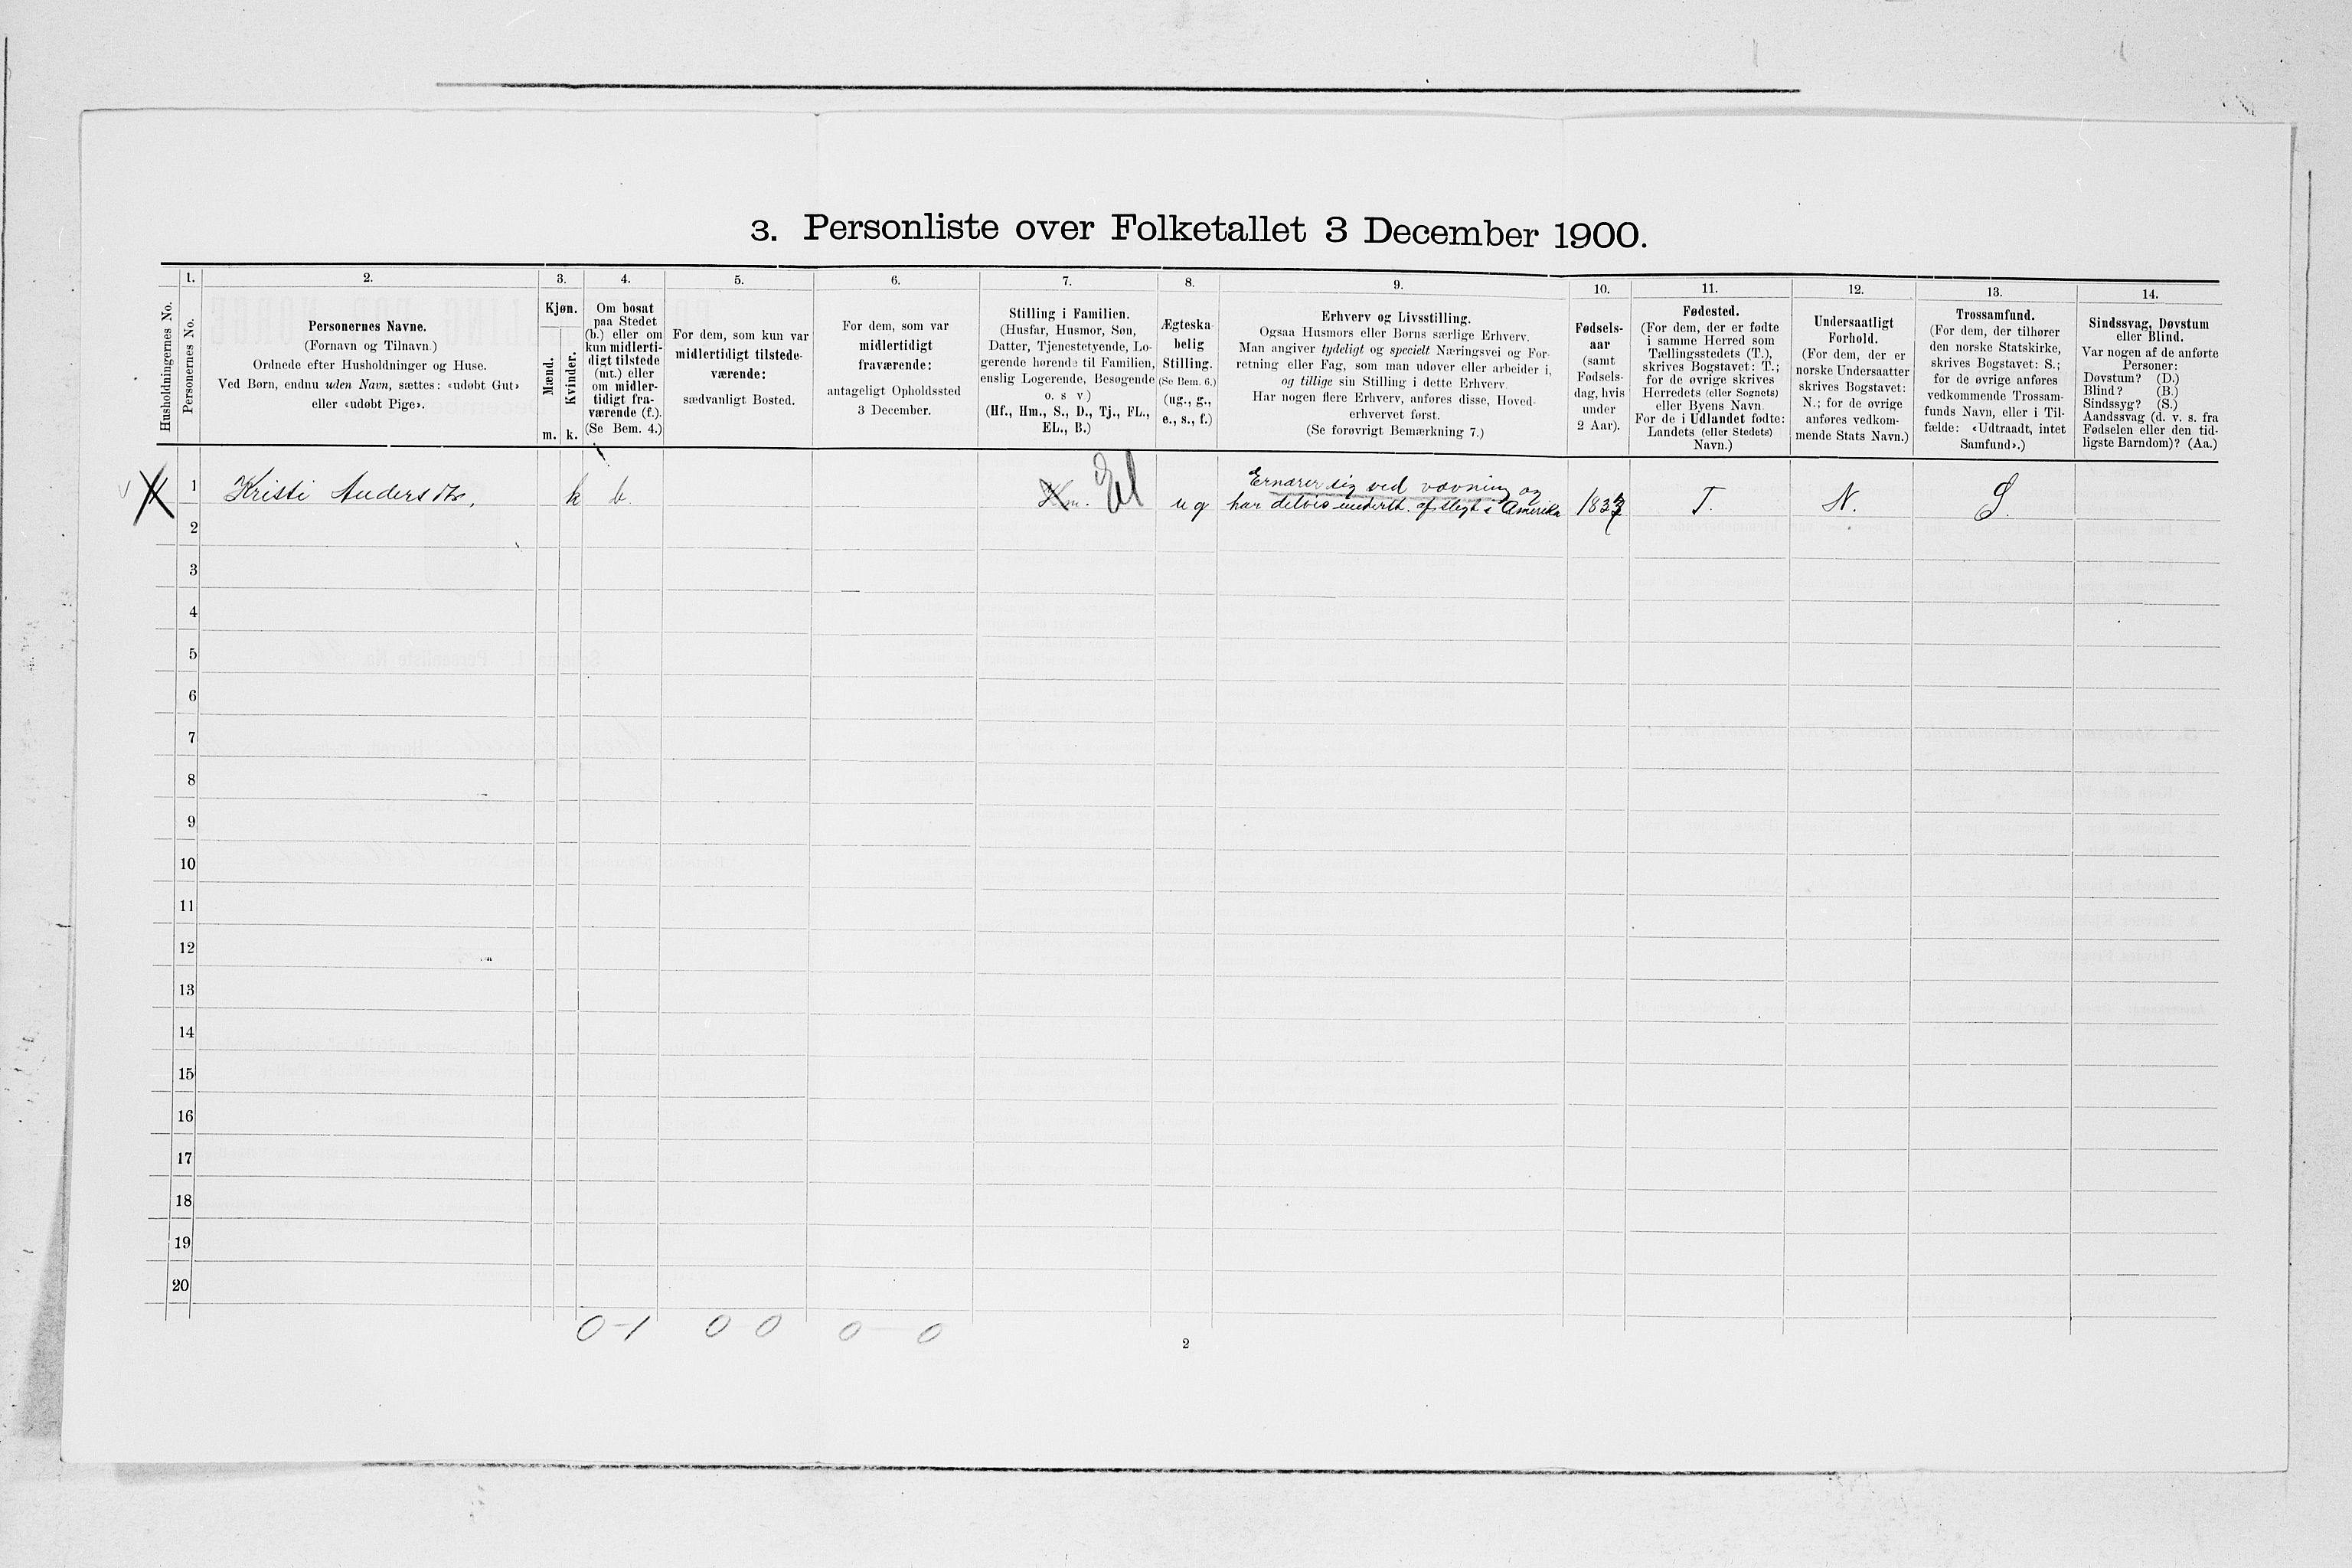 3. Personliste over Folketallet 3 December 1900.
Husholdningernes No.
1.
Personernes No.
2.
Personernes Navne.
(Fornavn og Tilnavn.)
Ordnede efter Husholdninger og Huse.
Ved Børn, endnu uden Navn, sættes: «udøbt Gut»
eller «udøbt Pige».
3.
Kjøn.
Mænd.
Kvinder.
m.
k.
4.
Om bosat
paa Stedet
(b.) eller om
kun midlerti-
digt tilstede
(mt.) eller
om midler-
tidigt fra-
værende (f.).
(Se Bem. 4.)
5.
For dem, som kun var
midlertidigt tilstede-
værende:
sædvanligt Bosted.
6.
For dem, som var
midlertidigt
fraværende:
antageligt Opholdssted
3 December.
7.
Stilling i Familien.
(Husfar, Husmor, Søn,
Datter, Tjenestetyende, Lo-
gerende hørende til Familien,
enslig Logerende, Besøgende
o. s v)
(Hf., Hm., S., D., Tj., FL.,
EL., B.)
8.
Ægteska-
belig
Stilling.
(Se Bem. 6.)
(ug., g.,
e., s., f.)
9.
Erhverv og Livsstilling.
Ogsaa Husmors eller Børns særlige Erhverv.
Man angiver tydeligt og specielt Næringsvei og For-
retning eller Fag, som man udøver eller arbeider i,
og tillige sin Stilling i dette Erhverv.
Har nogen flere Erhverv, anføres disse, Hoved-
erhvervet først.
(Se forøvrigt Bemærkning 7.)
10.
Fødsels-
aar
(samt
Fødsels-
dag, hvis
under
2 Aar).
11.
Fødested.
(For dem, der er fødte
i samme Herred som
Tællingsstedets (T.),
skrives Bogstavet: T.;
for de øvrige skrives
Herredets (eller Sognets)
eller Byens Navn.
For de i Udlandet fødte:
Landets (eller Stedets)
Navn.)
12.
Undersaatligt
Forhold.
(For dem, der er
norske Undersaatter
skrives Bogstavet:
N.; for de øvrige
anføres vedkom-
mende Stats Navn.)
13.
Trossamfund.
(For dem, der tilhører
den norske Statskirke,
skrives Bogstavet: S.;
for de øvrige anføres
vedkommende Trossam-
funds Navn, eller i Til-
fælde: «Udtraadt, intet
Samfund».)
14.
Sindssvag, Døvstum
eller Blind.
Var nogen af de anførte
Personer:
Døvstum? (D.)
Blind? (B.)
Sindssyg? (S.)
Aandssvag (d. v. s. fra
Fødselen eller den tid-
ligste Barndom)? (Aa.)
1 Kristi Andersdtr, k b Hm. El ug Ernærer sig ved vævning og
har delvis underst. af slegt i Amerika T. N. S.
2
3
4
5
6
7
8
9
10
11
12
13
14
15
16
17
18
19
20
0-1 0 0 0 0
2